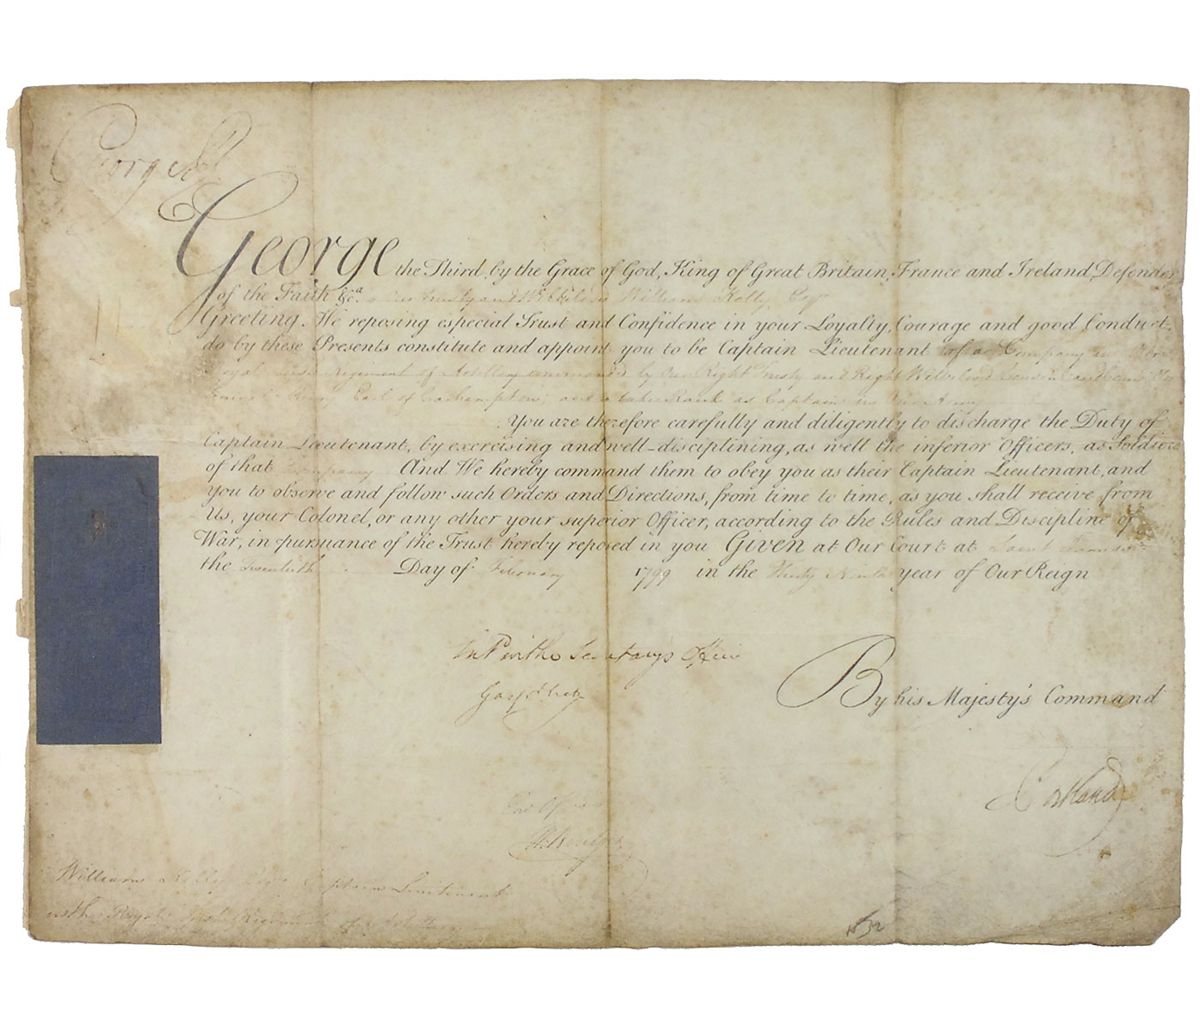 George R
George the Third, by the Grace of God, King of Great Britain, France and Ireland, Defender
of the Faith &c.a To Our Trusty and Welbeloved William Kelly Esqr
Greeting. We reposing especial Trust and Confidence in your Loyalty, Courage and good Conduct,
do by these Presents constitute and appoint you to be Captain Lieutenant of a Company in Our
Royal Irish Regiment of Artillery commanded by Our Right Trusty and Right Welbeloved Cousin and
Earl of Carhampton; and to take Rank as Captain in Our Army
You are therefore carefully and diligently to discharge the Duty of
Captain Lieutenant, by exercising and well-disciplining, as well the inferior Officers, as Soldiers
of that Company And We hereby command them to obey you as their Captain Lieutenant, and
you to observe and follow such Orders and Directions, from time to time, as you shall receive from
Us, your Colonel, or any other your superior Officer, according to the Rules and Discipline of
War, in pursuance of the Trust hereby reposed in you Given at Our Court at Saint James's
the Twentieth Day of February 1799 in the Thirty Ninth year of Our Reign
Secretary's Office
By his Majesty's Command
Portland
William Kelly Esqr Captain Lieutenant
in the Royal Irish Regiment of Artillery